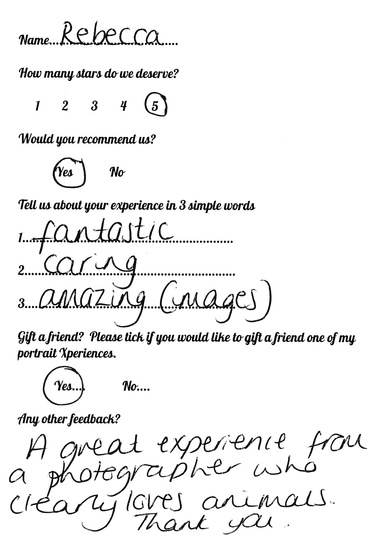 Name....Rebecca.....
How many stars do we deserve?
1 2 3 4 5
Would you recommend us?
Yes No
Tell us about your experience in 3 simple words
1....fantastic..............
2....caring....................
3...amazing (images)
Gift a friend? Please tick if you would like to gift a friend one of my
portrait Xperiences.
Yes.... No....
Any other feedback?
A great experience from
a photographer who
clearly loves animals.
Thank you.